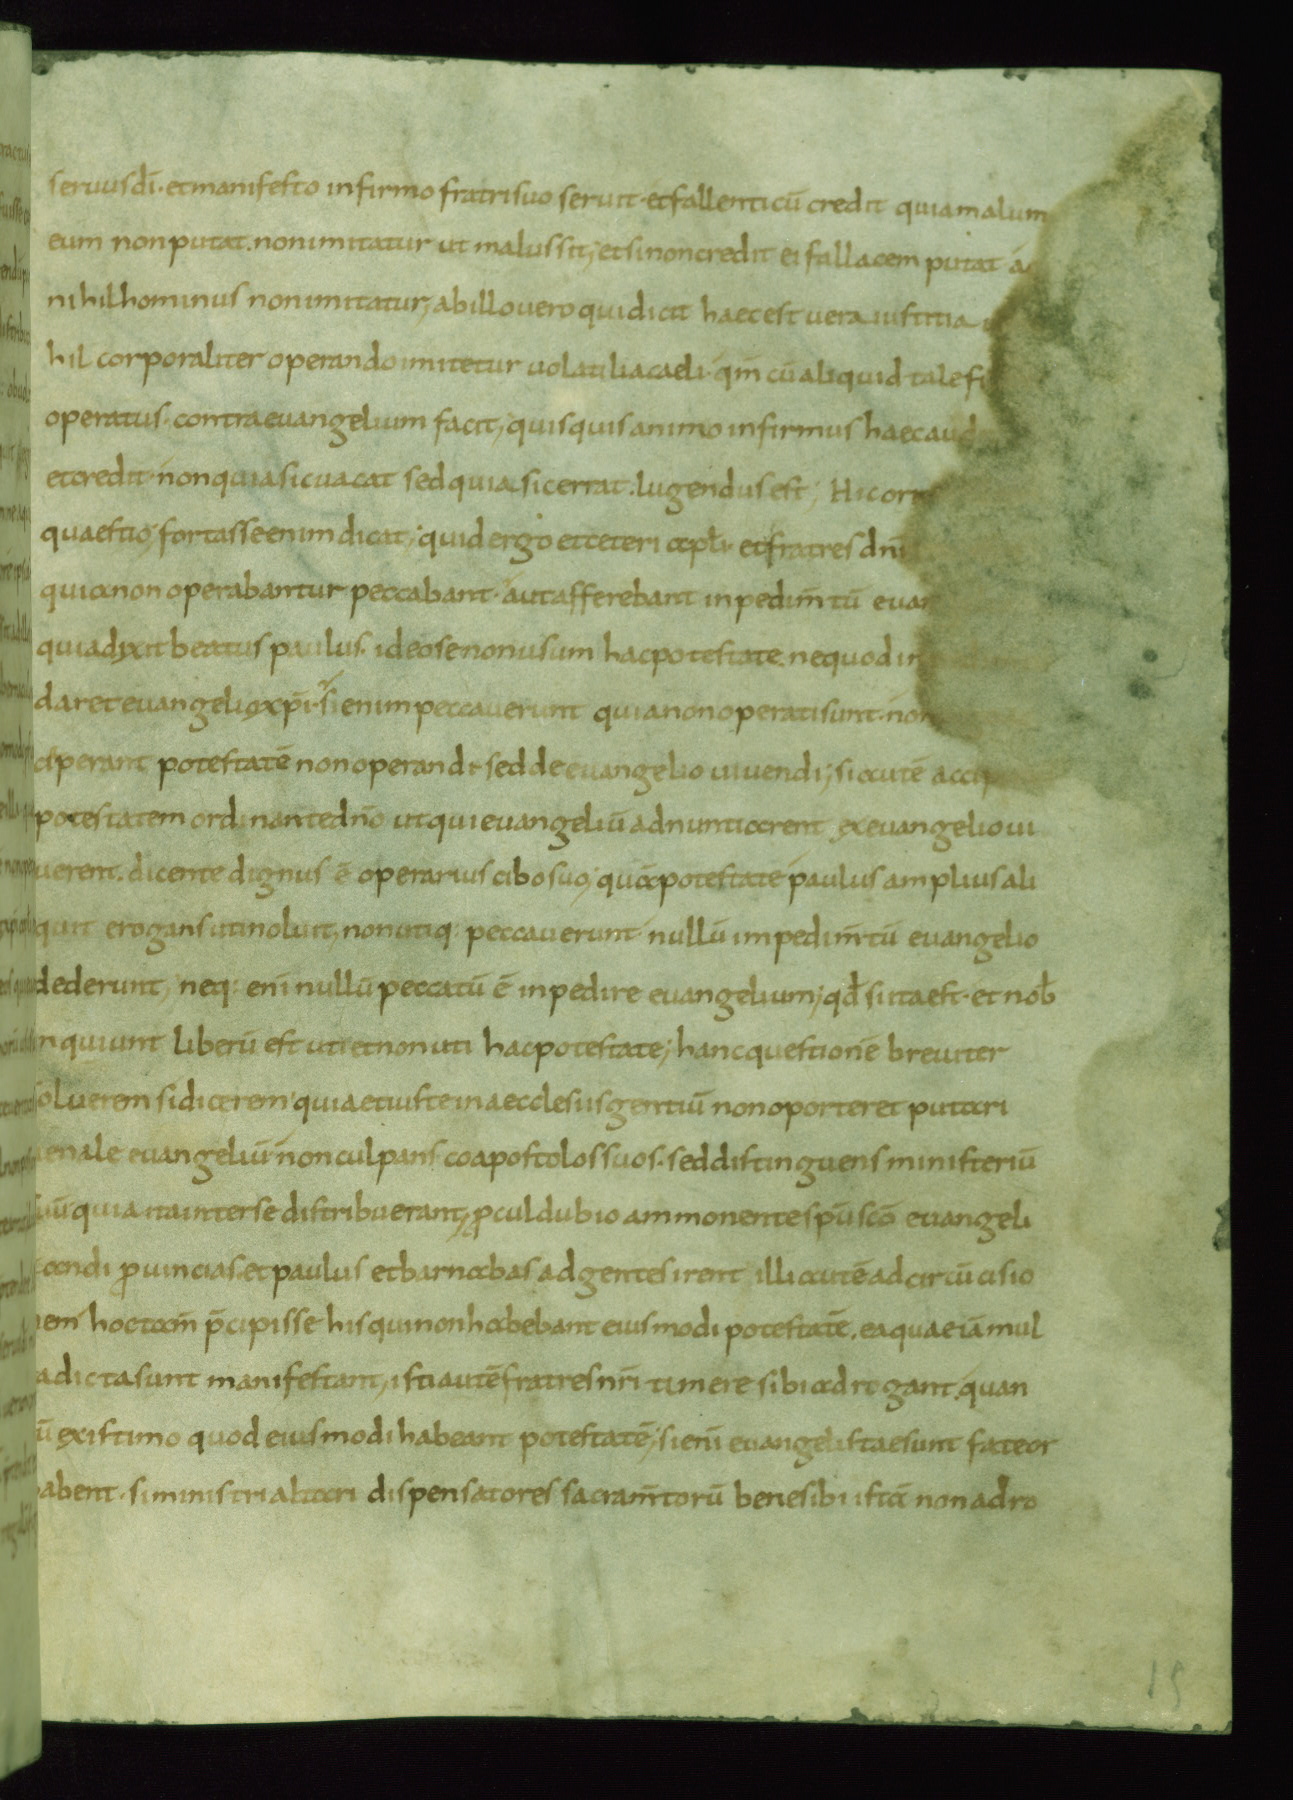 seruus dī · et manifesto infirmo fratri suo seruit · et fallenti cū credit quia malum
eum non putat. non imitatur ut malus sit; et si non credit ei fallacem putat
nihilhominus non imitatur; ab illo uero qui dicit haec est uera iustitia
hil corporaliter operando imitetur uolatilia caeli · qm̄ cū aliquid tale
operatus · contra euangelium facit; quisquis animo infirmus haec
et credit · non quia sic uacat sed quia sic errat · lugendus est; Hic
quaestio; fortasse enim dicat; quid ergo et ceteri apl̄i · et fratres dn̄i
quia non operabantur peccabant · aut afferebant inpedim̄tū
quia dixit beatus paulus · ideo se non usum hac potestate · ne quod
daret euangelio xp̄i · si enim peccauerunt quia non operati sunt ·
perant potestatē non operandi sed de euangelio uiuendi; si autē
potestatem ordinante dn̄o ut qui euangeliū adnuntiarent ex euangelio ui
uerent · dicente dignus ē operarius cibo suo; qua potestate paulus amplius ali
quit erogans uti noluit, non utiq: peccauerunt · nullū impedim̄tū euangelio
dederunt, neq: enī nullū peccatū ē inpedire euangelium; qd̄ si ita est · et nob̄
nquiunt liberū est uti et non uti hac potestate; hanc questionē breuiter
oluerem si dicerem quia et iuste in aecclesiis gentiū non oporteret putari
enale euangeliū non culpans coapostolos suos · sed distinguens ministeriū
uū quia ita inter se distribuerant, procul dubio ammonente sp̄u scō euangeli
zandi prouincias · et paulus et barnabas ad gentes irent illi autē ad circūcisio
em hoc tam̄ p̄cipisse his qui non habebant eius modi potestatē, ea quae iā mul
a dicta sunt manifestant, isti autē fratres nr̄i timere sibi adrogant, quan
ū existimo quod eius modi habeant potestatē; si enī euangelistae sunt fateor
abent · si ministri altari dispensatores sacram̄torū bene sibi ista non adro
15